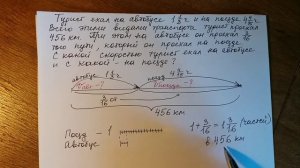 Турист ехал на автобусе 1 1/2 ч и на поезде 4
Всего этими видами транспорта турист проехал
456 км. При этом на автобусе он проехал 3/16
того пути, который он проехал на поезде.
С какой скоростью турист ехал на автобусе
и с какой - на поезде?
автобус 1 1/2 ч
поезд 4
V авт -?
V поезда -?
3/16 от
456 км
Поезд - 1
Автобус
1 + 3/16 = 1 3/16 (частей)
в 456 км